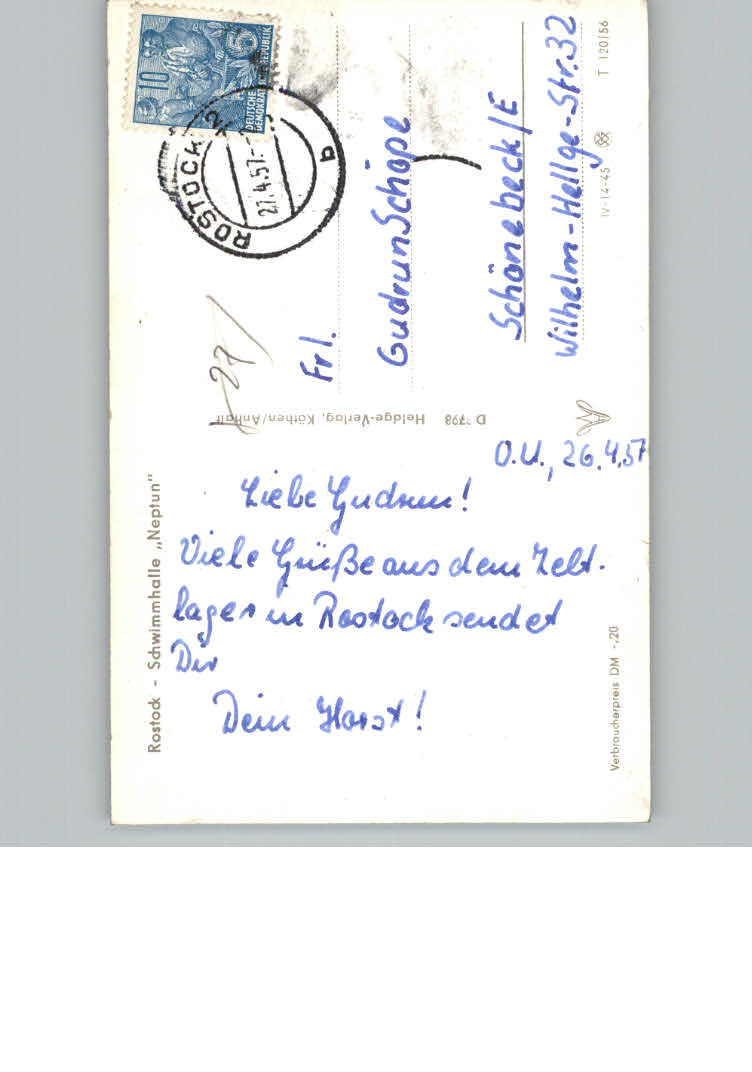 Rostock - Schwimmhalle „Neptun"
O.U., 26.4.57
Liebe Gudrun!
Viele Grüße aus dem Zelt-
lager in Rostock sendet
Dir
Dein Horst!
Verbraucherpreis DM -,20
D 798 Heldge-Verlag, Köthen/Anhalt
10
5
DEUTSCHE
DEMOKRATISCHE REPUBLIK
ROSTOCK
27.4.57.-
b
27
Frl.
Gudrun Schöpe
Schönebeck/E
Wilhelm-Hellge-Str. 32
IV-14-45
T 120/56